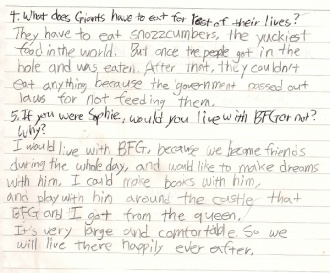 4. What does Giants have to eat for rest of their lives?
They have to eat snozzcumbers, the yuckiest
food in the world. But once the people got in the
hole and was eaten. After that, they couldn't
eat anything because the government passed out
laws for not feeding them.
5. If you were Sophie, would you live with BFG or not?
Why?
I would live with BFG, because we became friends
during the whole day, and would like to make dreams
with him, I could make books with him,
and play with him around the castle that
BFG and I got from the queen.
It's very large and comfortable. So we
will live there happily ever eafter.